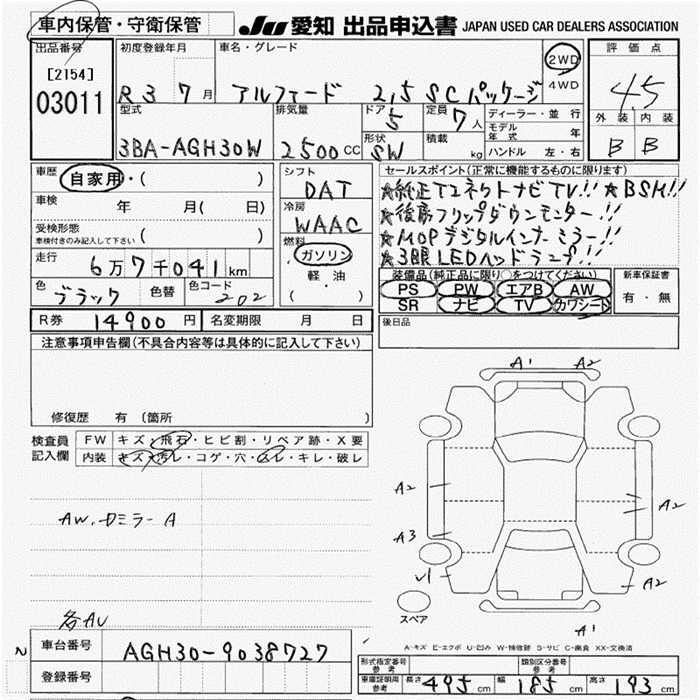 車内保管・守衛保管
JU 愛知 出品申込書 JAPAN USED CAR DEALERS ASSOCIATION
出品番号
[2154]
03011
初度登録年月
R3 7月
車名・グレード
アルファード 2.5 SCパッケージ
2WD
4WD
評価点
4.5
外装 内装
B B
型式
3BA-AGH30W
排気量
2500CC
ドア
5
形状
SW
定員
7人
積載
kg
ディーラー・並行
モデル年式 年
ハンドル 左・右
車歴
自家用・( )
車検
年 月( 日)
受検形態
車検付きのみ記入して下さい
( )
走行
6万7千041km
色
ブラック
色替
色コード
202
シフト
DAT
冷房
WAAC
燃料
ガソリン
軽・油
( )
セールスポイント(正常に機能するものに限ります)
★純正T2ネクトナビTV!! ★BSM!!
★後席フリップダウンモニター!!
★MOPデジタルインナーミラー!!
★3眼LEDヘッドランプ!!
装備品(純正品に限り○をつけてください)
PS PW エアB AW
SR ナビ TV カワシート
新車保証書
有・無
R券 14900円
名変期限 月 日
後日品
注意事項申告欄(不具合内容等は具体的に記入して下さい)
修復歴 有 (箇所 )
検査員
記入欄
FW キズ・飛石・ヒビ割・リペア跡・X要
内装 キズ・汚レ・コゲ・穴・スレ・キレ・破レ
AW、ロミラーA
各AU
A1 A2
A2
A2
A3
A2
A1
スペア
A-キズ E-エクボ U-凹み W-補修跡 S-サビ C-腐食 XX-交換済
車台番号
AGH30-9038727
登録番号
形式指定番号
参考
類別区分番号
参考
車庫証明用
参考
長さ 495cm 幅 185cm 高さ 193cm